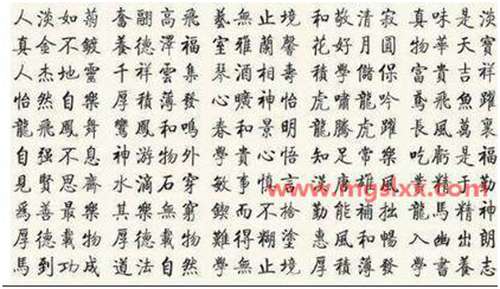 人淡如菊 奮翮高飛 藝無止境 和敬清寂 真味是淡
真金不鍍 養德澤福 室雅蘭馨 花好月圓 物華天寶
人杰地靈 千祥雲集 琴 相壽 積學儲 富貴吉祥
怡然自樂 厚積薄發 曠神怡 虎嘯龍吟 鳶飛魚躍
龍飛鳳舞 鸞鳳和鳴 春和景明 龍騰虎躍 長風萬里
自强不息 神游物外 學貴心悟 知足常樂 吃虧是福
見賢思齊 水滴石穿 敏事慎言 雅風 業精于勤
為善最樂 其樂無窮 鍥而不捨 勤能補拙 龍馬精神
厚德載物 厚德載物 難得糊塗 惠風和暢 入幽出朗
馬到功成 道法自然 學無止境 厚積薄發 學書養志
www.mgslxx.com